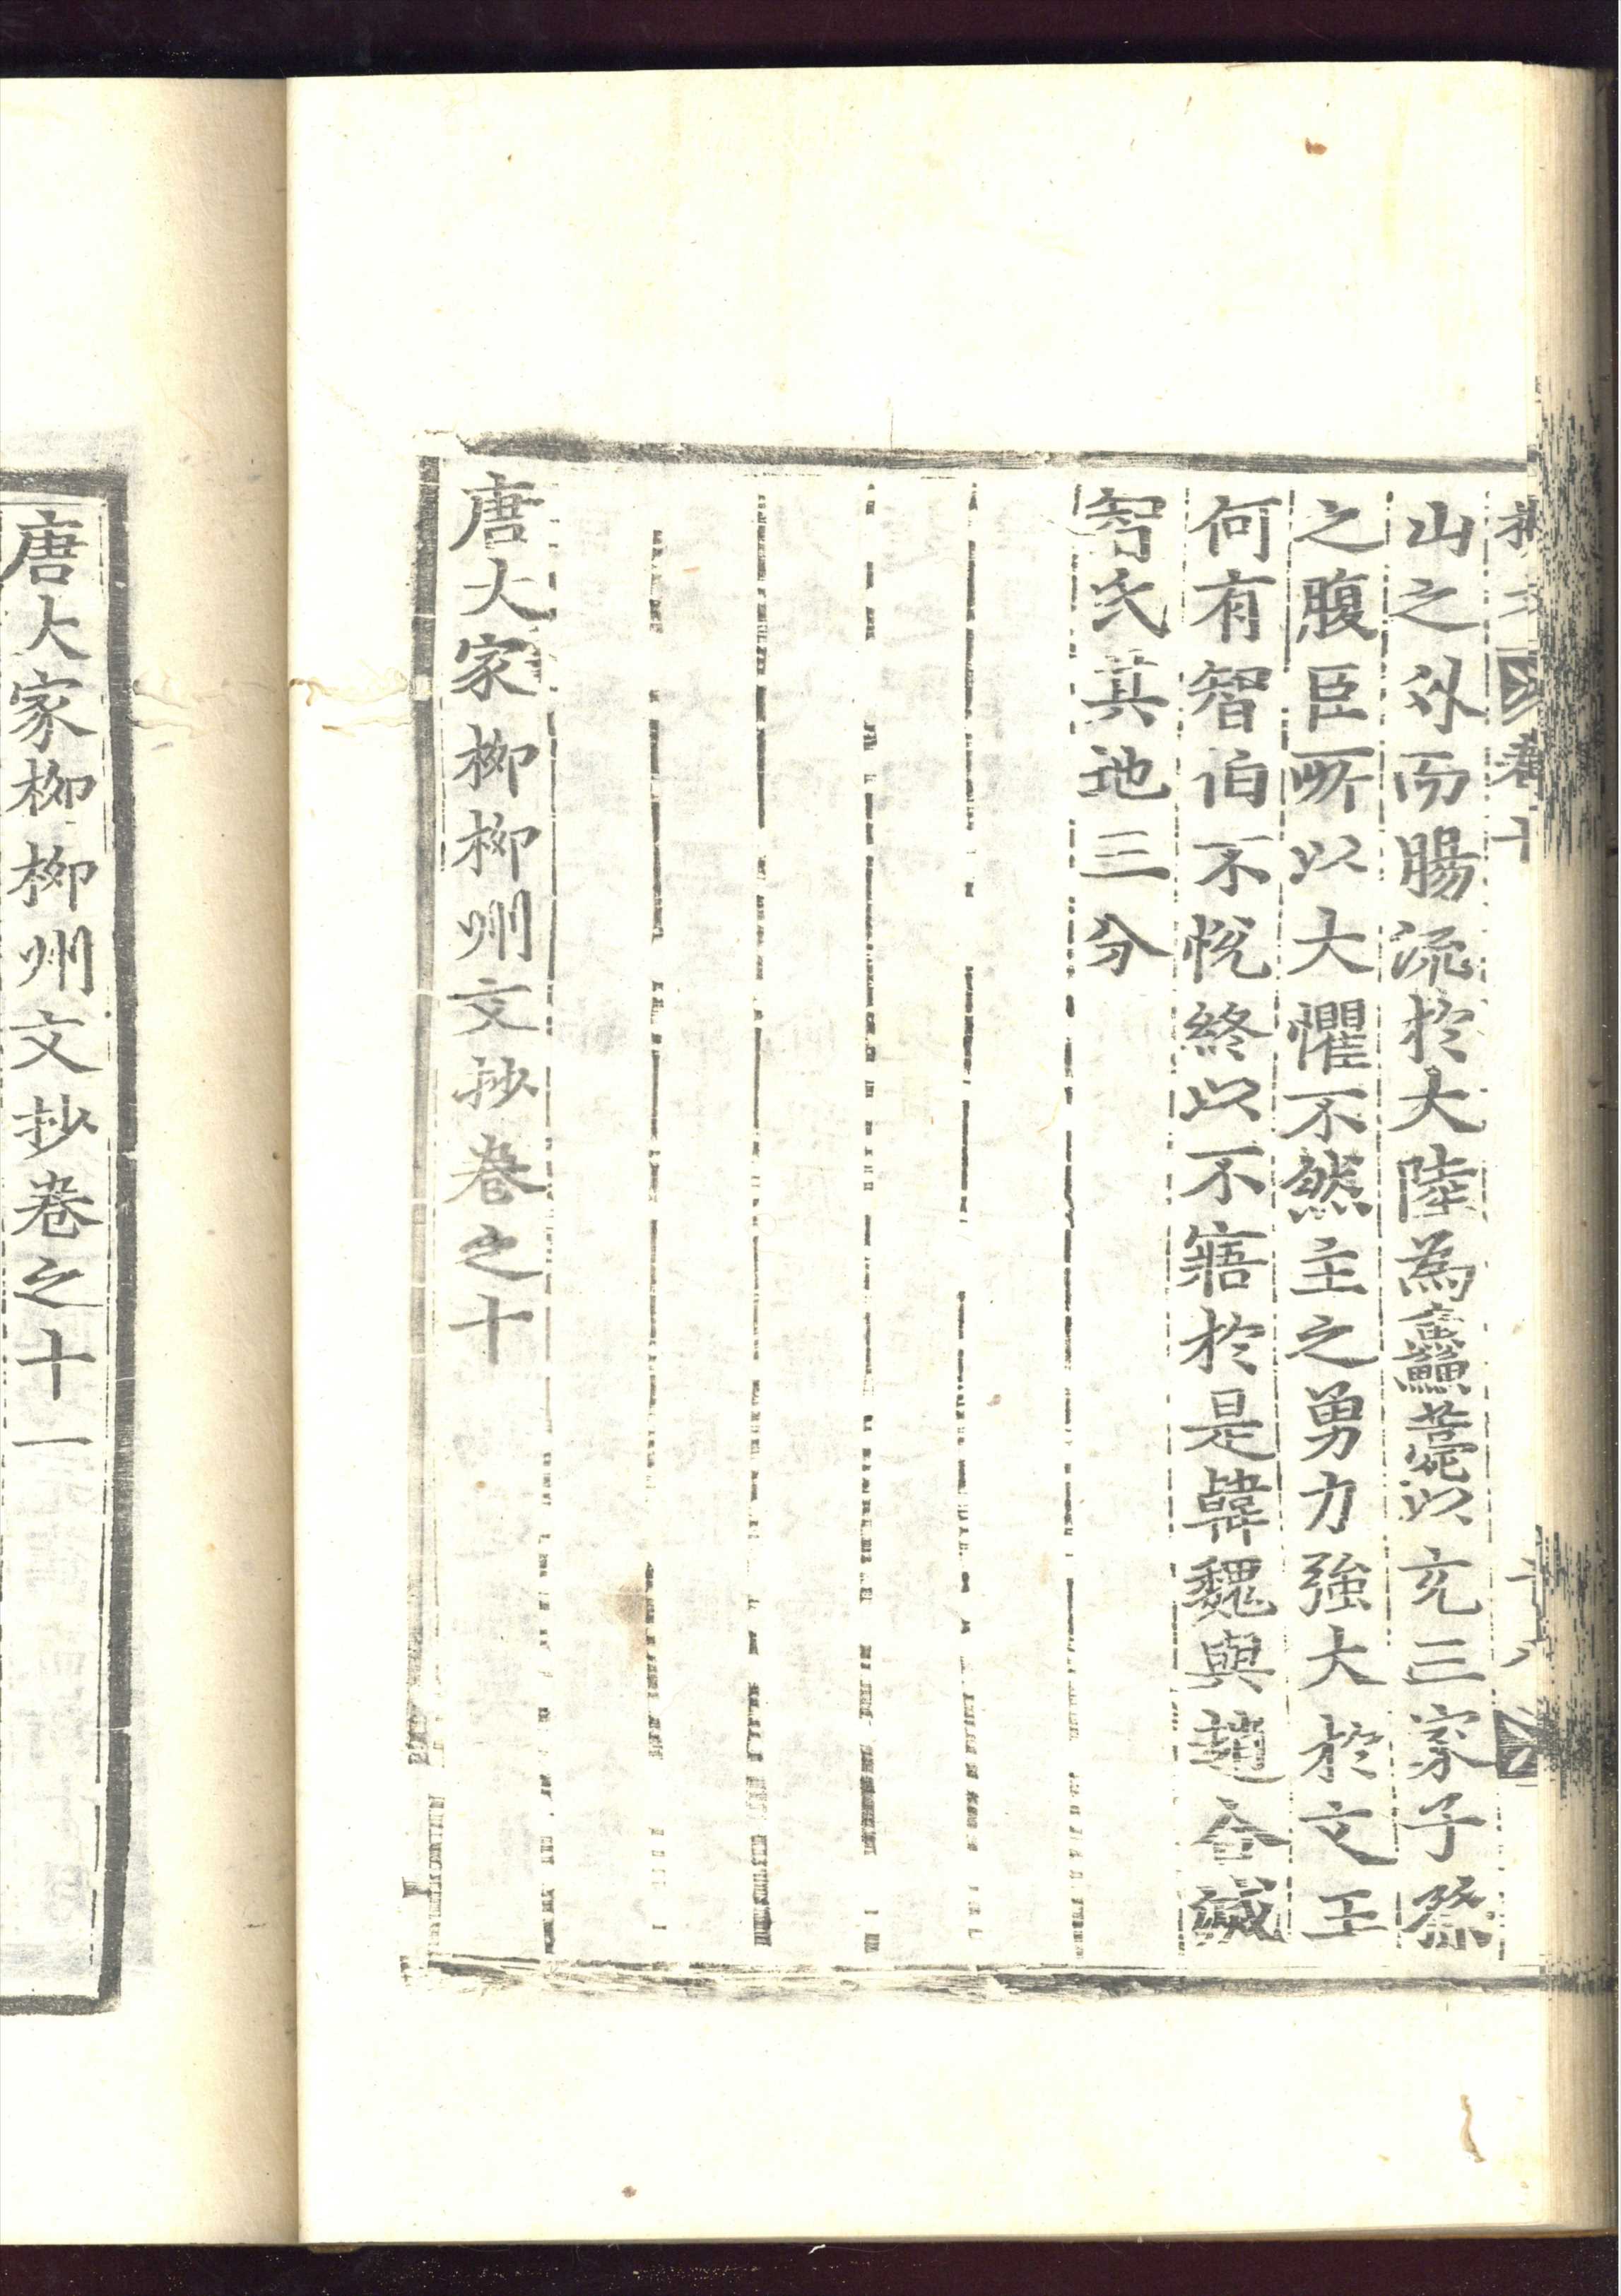 柳文 卷十 十八
山之外而腸流於大陸為鱻薧以充三家子孫
之腹臣所以大懼不然主之勇力強大於文王
何有智伯不悅終以不寤於是韓魏與趙合滅
智氏其地三分
唐大家柳柳州文抄卷之十
唐大家柳柳州文抄卷之十一